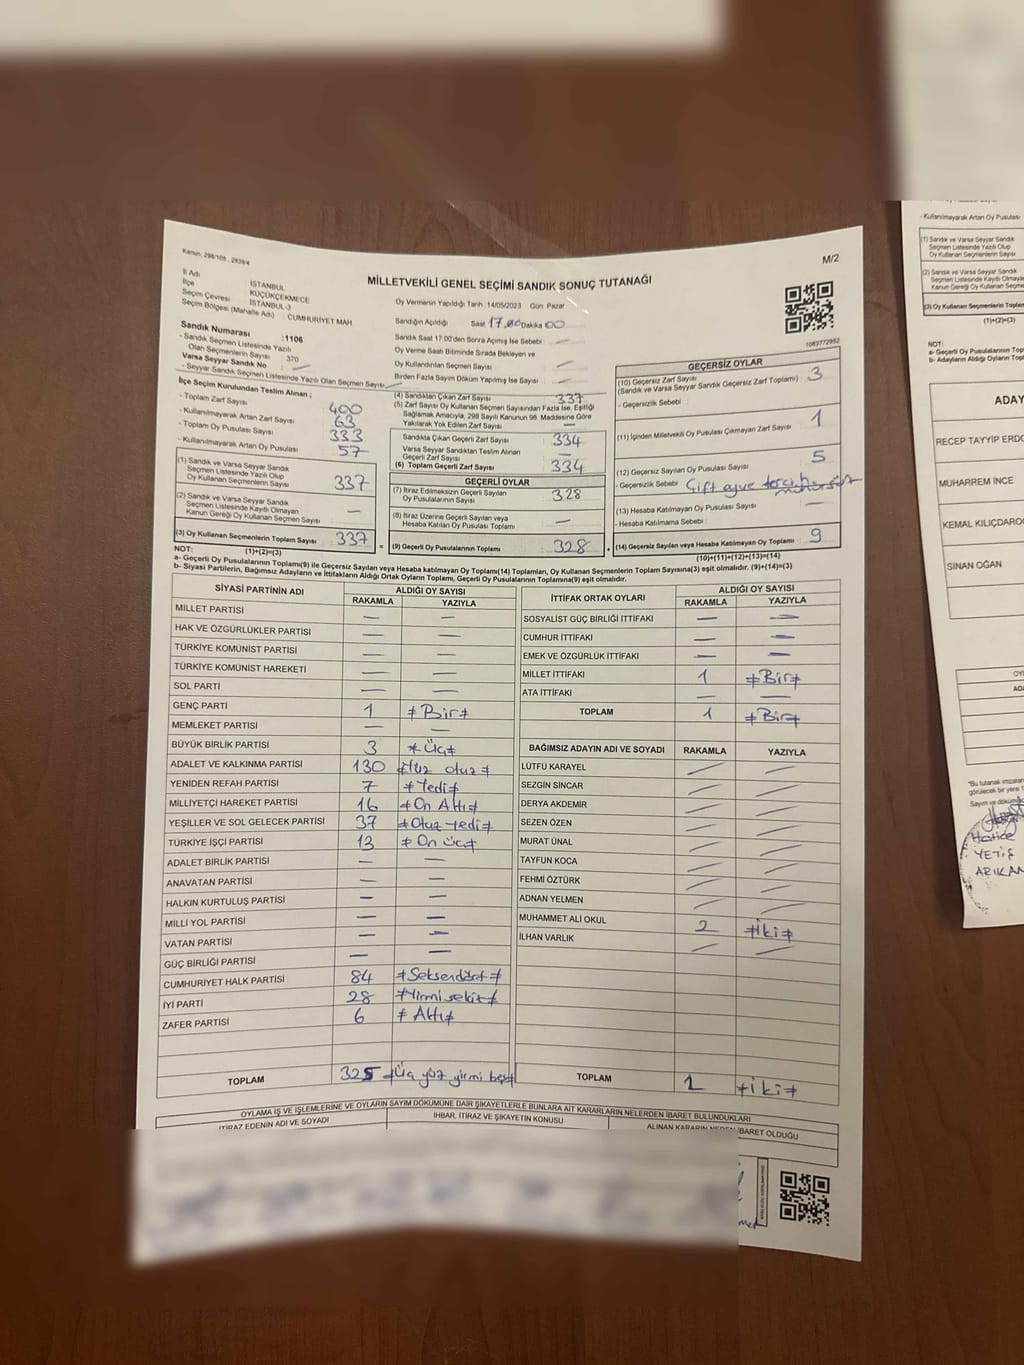 Kanun; 298/105 , 2839/4
M/2
MİLLETVEKİLİ GENEL SEÇİMİ SANDIK SONUÇ TUTANAĞI
İl Adı : İSTANBUL
İlçe : KÜÇÜKÇEKMECE
Seçim Çevresi : İSTANBUL-3
Seçim Bölgesi (Mahalle Adı) : CUMHURİYET MAH
Sandık Numarası :1106
- Sandık Seçmen Listesinde Yazılı
Olan Seçmenlerin Sayısı : 370
Varsa Seyyar Sandık No :
- Seyyar Sandık Seçmen Listesinde Yazılı Olan Seçmen Sayısı :
Oy Vermenin Yapıldığı Tarih :14/05/2023 Gün: Pazar
Sandığın Açıldığı Saat 17,00 Dakika 00
Sandık Saat 17:00'den Sonra Açılmış İse Sebebi : —
Oy Verme Saati Bitiminde Sırada Bekleyen ve
Oy Kullandırılan Seçmen Sayısı : —
Birden Fazla Sayım Döküm Yapılmış İse Sayısı : —
1083772952
İlçe Seçim Kurulundan Teslim Alınan ;
- Toplam Zarf Sayısı 400
- Kullanılmayarak Artan Zarf Sayısı 63
- Toplam Oy Pusulası Sayısı 333
- Kullanılmayarak Artan Oy Pusulası 57
(1) Sandık ve Varsa Seyyar Sandık
Seçmen Listesinde Yazılı Olup
Oy Kullanan Seçmen Sayısı 337
(2) Sandık ve Varsa Seyyar Sandık
Seçmen Listesinde Kayıtlı Olmayan
Kanun Gereği Oy Kullanan Seçmen Sayısı —
(3) Oy Kullanan Seçmenlerin Toplam Sayısı 337
(1)+(2)=(3)
(4) Sandıktan Çıkan Zarf Sayısı 337
(5) Zarf Sayısı Oy Kullanan Seçmen Sayısından Fazla İse, Eşitliği
Sağlamak Amacıyla, 298 Sayılı Kanunun 98. Maddesine Göre
Yakılarak Yok Edilen Zarf Sayısı —
Sandıkta Çıkan Geçerli Zarf Sayısı 334
Varsa Seyyar Sandıktan Teslim Alınan
Geçerli Zarf Sayısı —
(6) Toplam Geçerli Zarf Sayısı 334
GEÇERLİ OYLAR
(7) İtiraz Edilmeksizin Geçerli Sayılan
Oy Pusulalarının Sayısı 328
(8) İtiraz Üzerine Geçerli Sayılan veya
Hesaba Katılan Oy Pusulası Toplamı —
(9) Geçerli Oy Pusulalarının Toplamı 328
GEÇERSİZ OYLAR
(10) Geçersiz Zarf Sayısı
(Sandık ve Varsa Seyyar Sandık Geçersiz Zarf Toplamı) 3
- Geçersizlik Sebebi :
(11) İçinden Milletvekili Oy Pusulası Çıkmayan Zarf Sayısı 1
(12) Geçersiz Sayılan Oy Pusulası Sayısı 5
- Geçersizlik Sebebi : Çift
(13) Hesaba Katılmayan Oy Pusulası Sayısı —
- Hesaba Katılmama Sebebi :
(14) Geçersiz Sayılan veya Hesaba Katılmayan Oy Toplamı 9
(10)+(11)+(12)+(13)=(14)
NOT:
a- Geçerli Oy Pusulalarının Toplamı(9) ile Geçersiz Sayılan veya Hesaba katılmayan Oy Toplamı(14) Toplamları, Oy Kullanan Seçmenlerin Toplam Sayısına(3) eşit olmalıdır. (9)+(14)=(3)
b- Siyasi Partilerin, Bağımsız Adayların ve İttifakların Aldığı Ortak Oyların Toplamı, Geçerli Oy Pusulalarının Toplamına(9) eşit olmalıdır.
SİYASİ PARTİNİN ADI ALDIĞI OY SAYISI
RAKAMLA YAZIYLA
MİLLET PARTİSİ — —
HAK VE ÖZGÜRLÜKLER PARTİSİ — —
TÜRKİYE KOMÜNİST PARTİSİ — —
TÜRKİYE KOMÜNİST HAREKETİ — —
SOL PARTİ — —
GENÇ PARTİ 1 ≠Bir≠
MEMLEKET PARTİSİ — —
BÜYÜK BİRLİK PARTİSİ 3 ≠Üç≠
ADALET VE KALKINMA PARTİSİ 130 ≠Yüz otuz≠
YENİDEN REFAH PARTİSİ 7 ≠Yedi≠
MİLLİYETÇİ HAREKET PARTİSİ 16 ≠On Altı≠
YEŞİLLER VE SOL GELECEK PARTİSİ 37 ≠Otuz Yedi≠
TÜRKİYE İŞÇİ PARTİSİ 13 ≠On üç≠
ADALET BİRLİK PARTİSİ — —
ANAVATAN PARTİSİ — —
HALKIN KURTULUŞ PARTİSİ — —
MİLLİ YOL PARTİSİ — —
VATAN PARTİSİ — —
GÜÇ BİRLİĞİ PARTİSİ — —
CUMHURİYET HALK PARTİSİ 84 ≠Seksendört≠
İYİ PARTİ 28 ≠Yirmisekiz≠
ZAFER PARTİSİ 6 ≠Altı≠
TOPLAM 325 ≠Üç yüz yirmi beş≠
İTTİFAK ORTAK OYLARI ALDIĞI OY SAYISI
RAKAMLA YAZIYLA
SOSYALİST GÜÇ BİRLİĞİ İTTİFAKI — —
CUMHUR İTTİFAKI — —
EMEK VE ÖZGÜRLÜK İTTİFAKI — —
MİLLET İTTİFAKI 1 ≠Bir≠
ATA İTTİFAKI — —
TOPLAM 1 ≠Bir≠
BAĞIMSIZ ADAYIN ADI VE SOYADI RAKAMLA YAZIYLA
LÜTFÜ KARAYEL
SEZGİN SİNCAR
DERYA AKDEMİR
SEZEN ÖZEN
MURAT ÜNAL
TAYFUN KOCA
FEHMİ ÖZTÜRK
ADNAN YELMEN
MUHAMMET ALİ OKUL 2 ≠İki≠
İLHAN VARLIK
TOPLAM 2 ≠İki≠
OYLAMA İŞ VE İŞLEMLERİNE VE OYLARIN SAYIM DÖKÜMÜNE DAİR ŞİKAYETLERLE BUNLARA AİT KARARLARIN NELERDEN İBARET BULUNDUKLARI
İTİRAZ EDENİN ADI VE SOYADI İHBAR, İTİRAZ VE ŞİKAYETİN KONUSU ALINAN KARARIN NEDEN İBARET OLDUĞU
- Kullanılmayarak Artan Oy Pusulası
(1) Sandık ve Varsa Seyyar Sandık
Seçmen Listesinde Yazılı Olup
Oy Kullanan Seçmenlerin Sayısı
(2) Sandık ve Varsa Seyyar Sandık
Seçmen Listesinde Kayıtlı Olmayan
Kanun Gereği Oy Kullanan Seçmen
(3) Oy Kullanan Seçmenlerin Toplam
(1)+(2)=(3)
NOT:
a- Geçerli Oy Pusulalarının
b- Adayların Geçerli Oy
ADAY
RECEP TAYYİP ERDO
MUHARREM İNCE
KEMAL KILIÇDARO
SİNAN OĞAN
Hatice
YETİŞ
ARIKAN